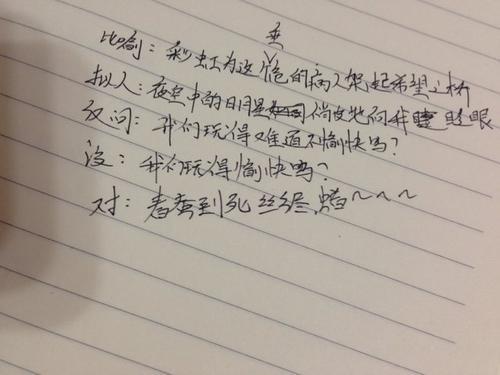 垂
比喻：彩虹为这危的病人架起希望之桥
拟人：夜空中的明星俏皮地向我眨眨眼
反问：我们玩得难道不愉快吗？
设：我们玩得愉快吗？
对：春蚕到死丝尽,蜡~~~